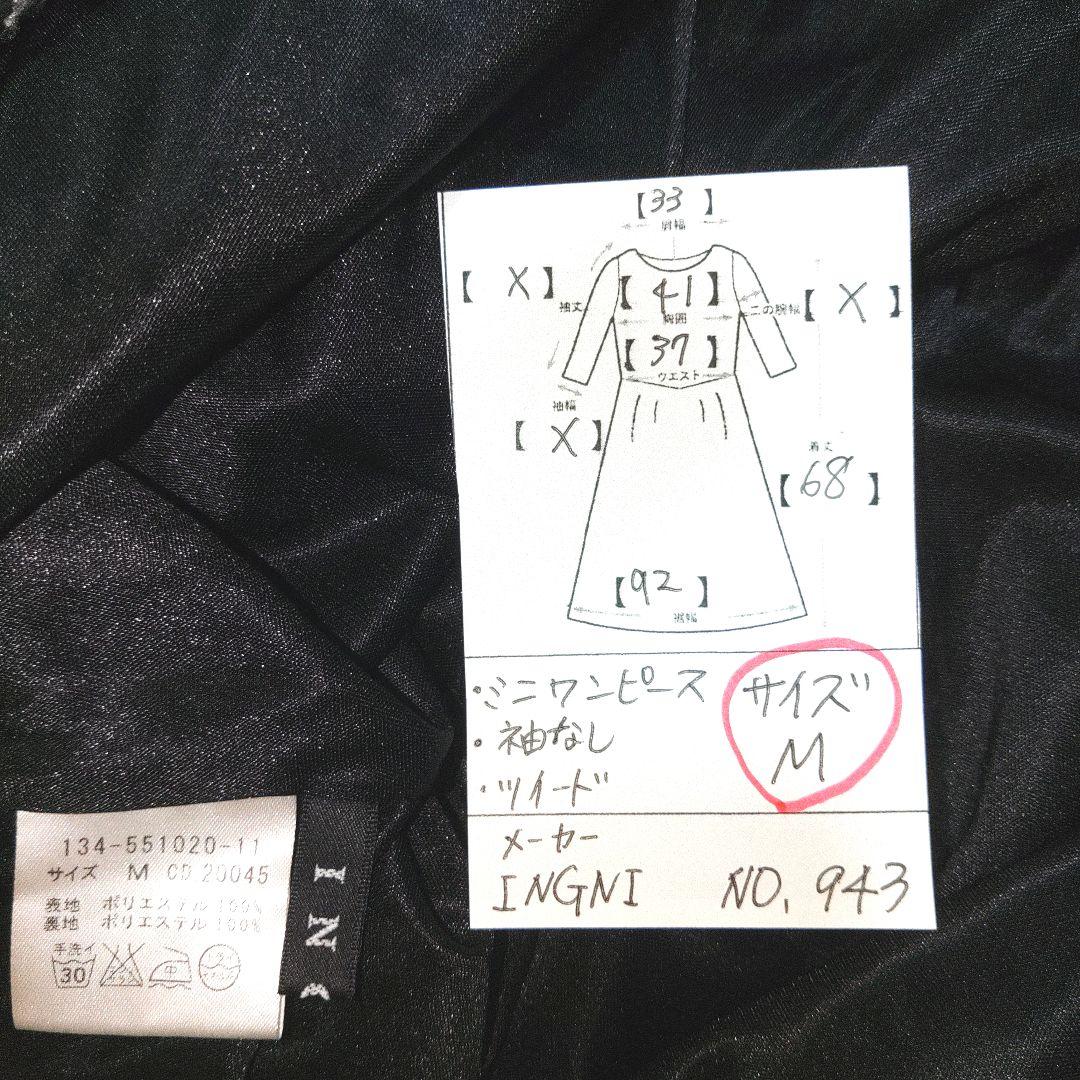 【33】
肩幅
【X】
袖丈
【41】
胸囲
二の腕幅
【X】
【37】
ウエスト
袖幅
【X】
着丈
【68】
【92】
裾幅
・ミニワンピース
・袖なし
・ツイード
サイズ
M
メーカー
INGNI NO,943
134-551020-11
サイズ M CD 20045
表地 ポリエステル 100%
裏地 ポリエステル 100%
手洗イ
30
中
ドライ
IN